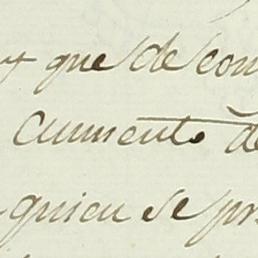 y que de con
aumento de
quien se pr